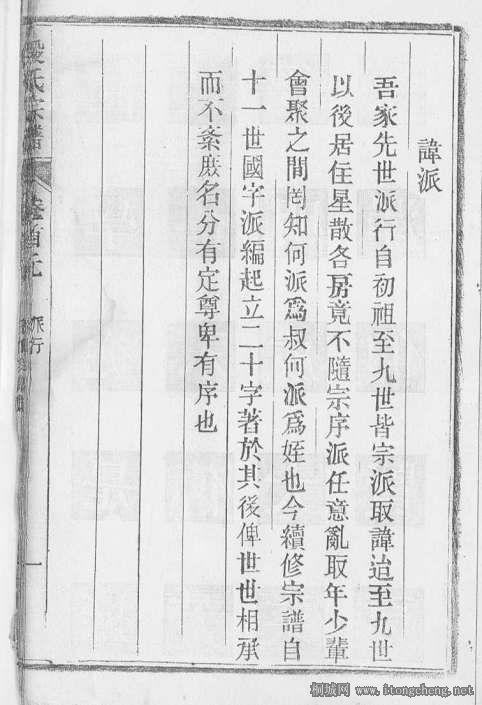 諱派
吾家先世派行自初祖至九世皆宗派取諱迨至九世
以後居住星散各房竟不隨宗序派任意亂取年少輩
會聚之間罔知何派爲叔何派爲姪也今續修宗譜自
十一世國字派編起立二十字著於其後俾世世相承
而不紊庶名分有定尊卑有序也
氏宗譜
卷首元
派行
一
桐城网 www.itongcheng.net